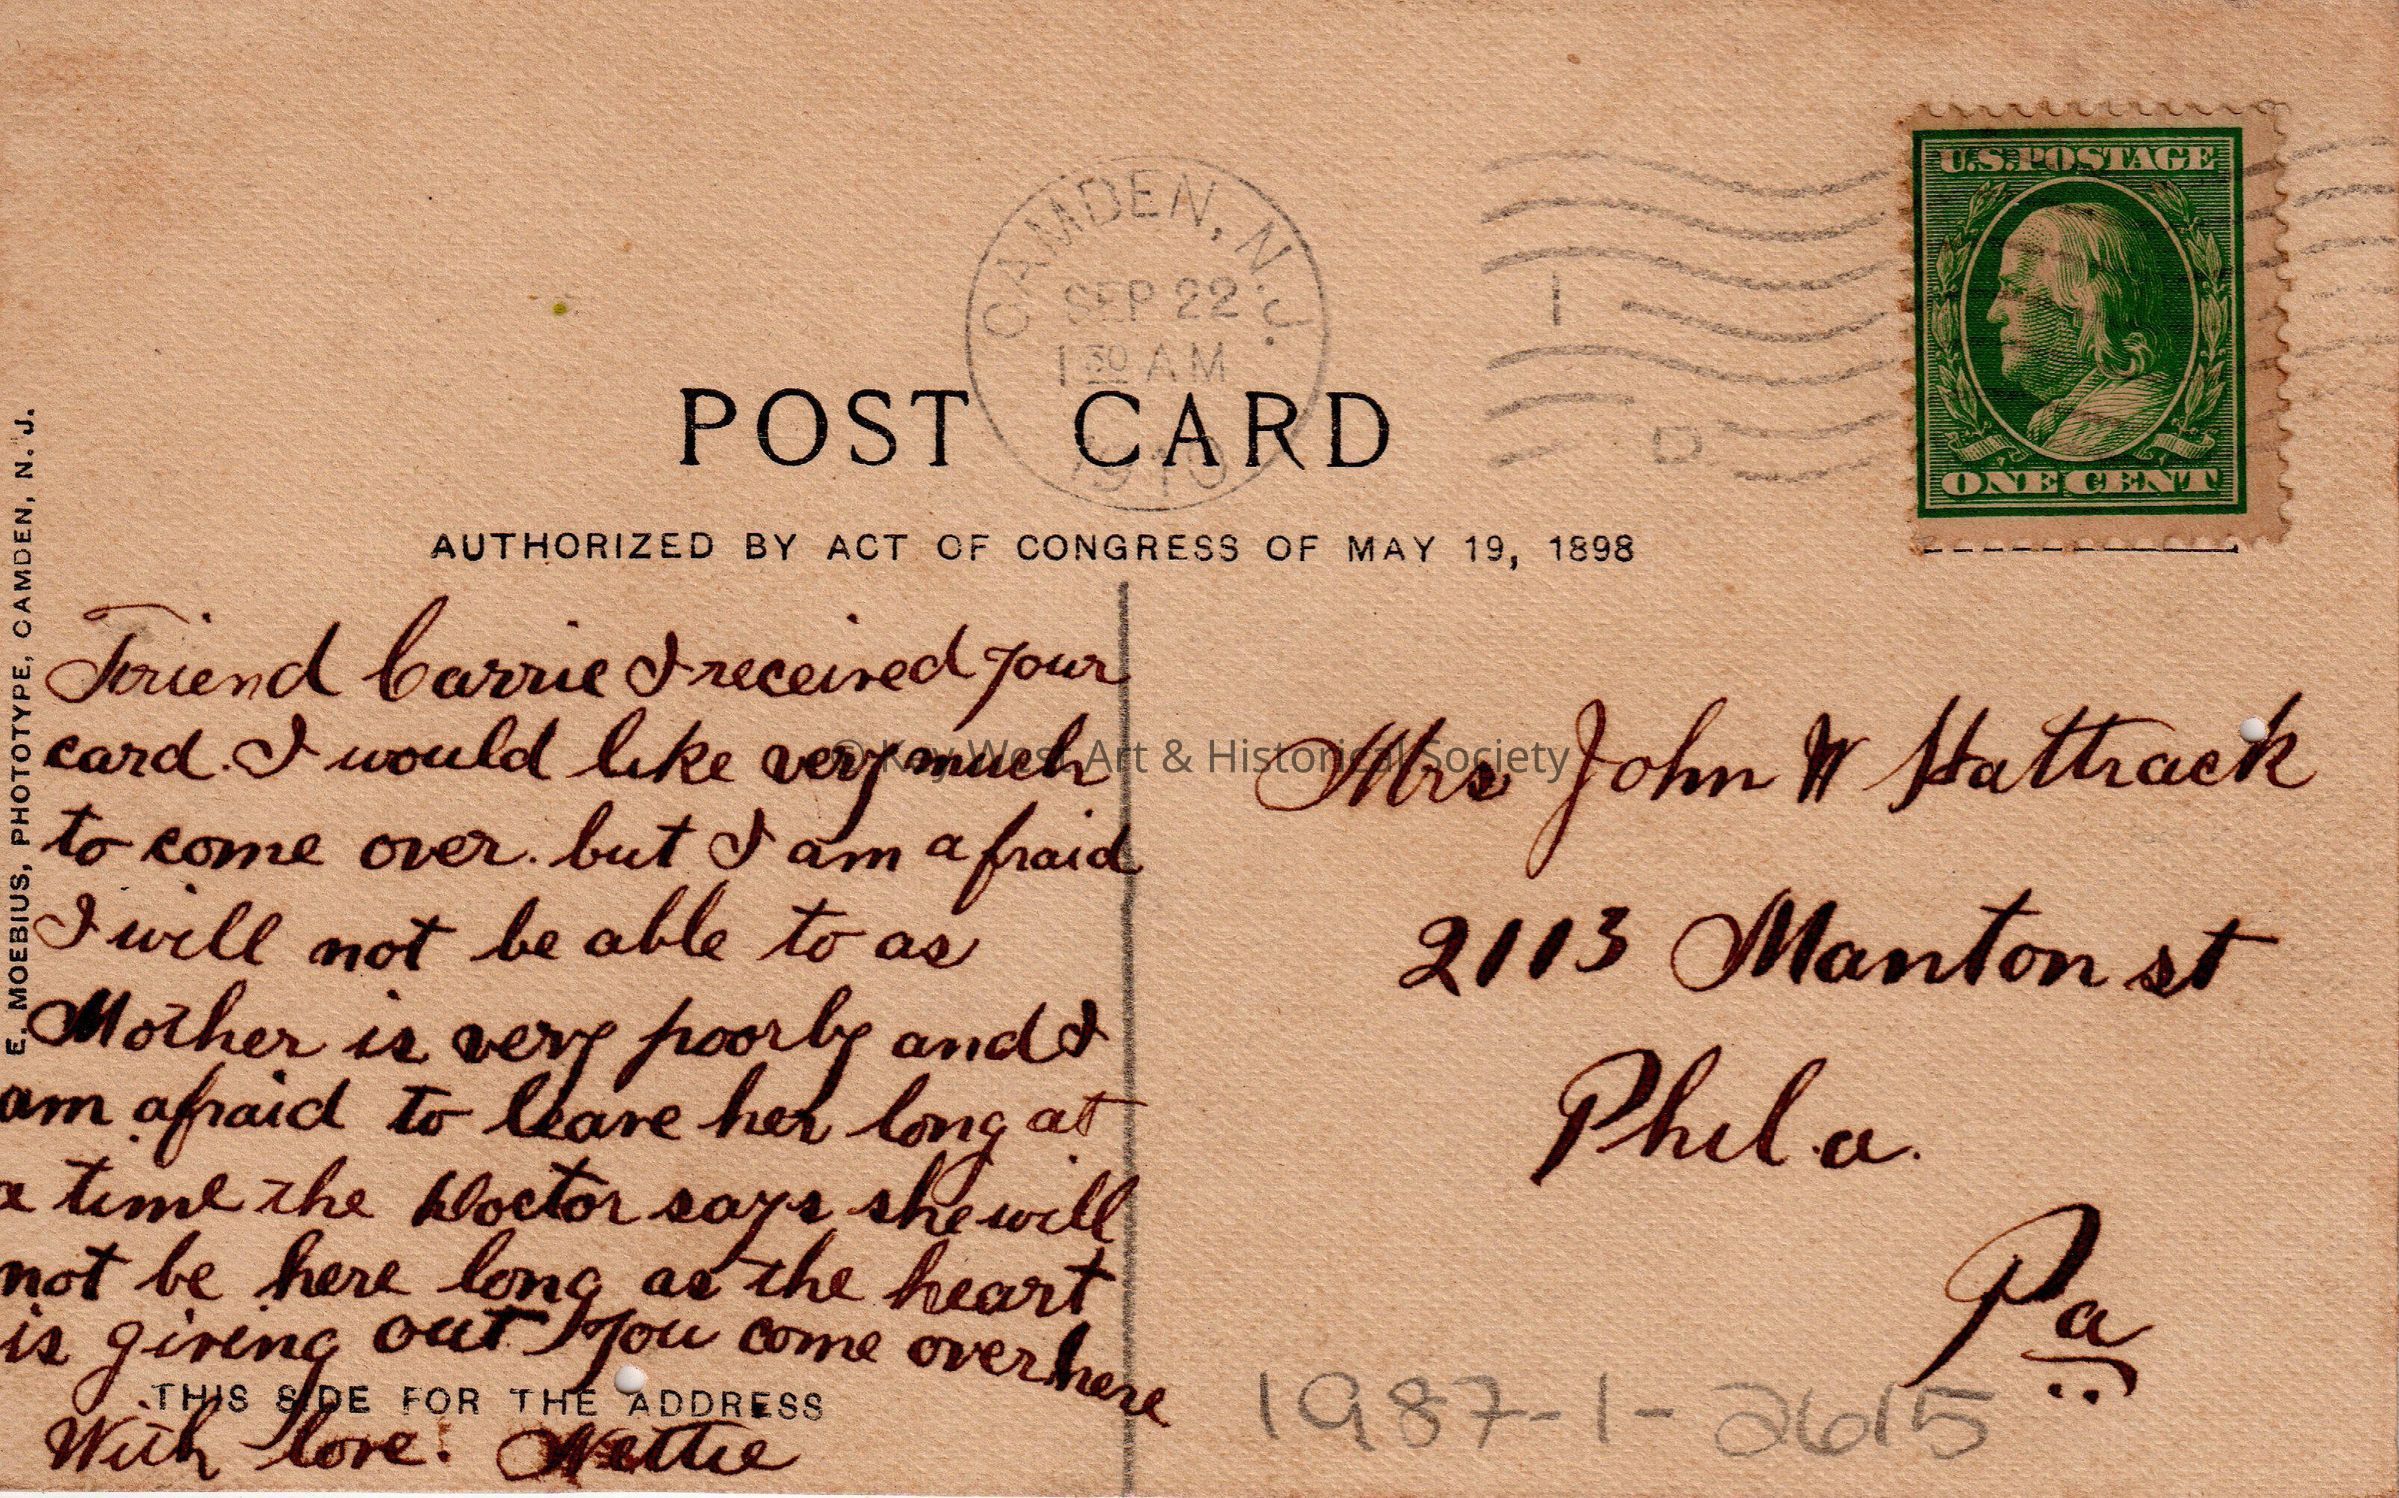 U.S. POSTAGE
ONE CENT
CAMDEN, N.J.
SEP 22
1 30 AM
1910
1
D
POST CARD
AUTHORIZED BY ACT OF CONGRESS OF MAY 19, 1898
E. MOEBIUS, PHOTOTYPE, CAMDEN, N. J.
Friend Carrie I received your
card. I would like very much
to come over. but I am afraid
I will not be able to as
Mother is very poorly and I
am afraid to leave her long at
a time the Doctor says she will
not be here long as the heart
is giving out You come over here
THIS SIDE FOR THE ADDRESS
With love. Nettie
Mrs John W Hattrack
2113 Manton st
Phil.a.
Pa
© Key West Art & Historical Society
1987-1-2615